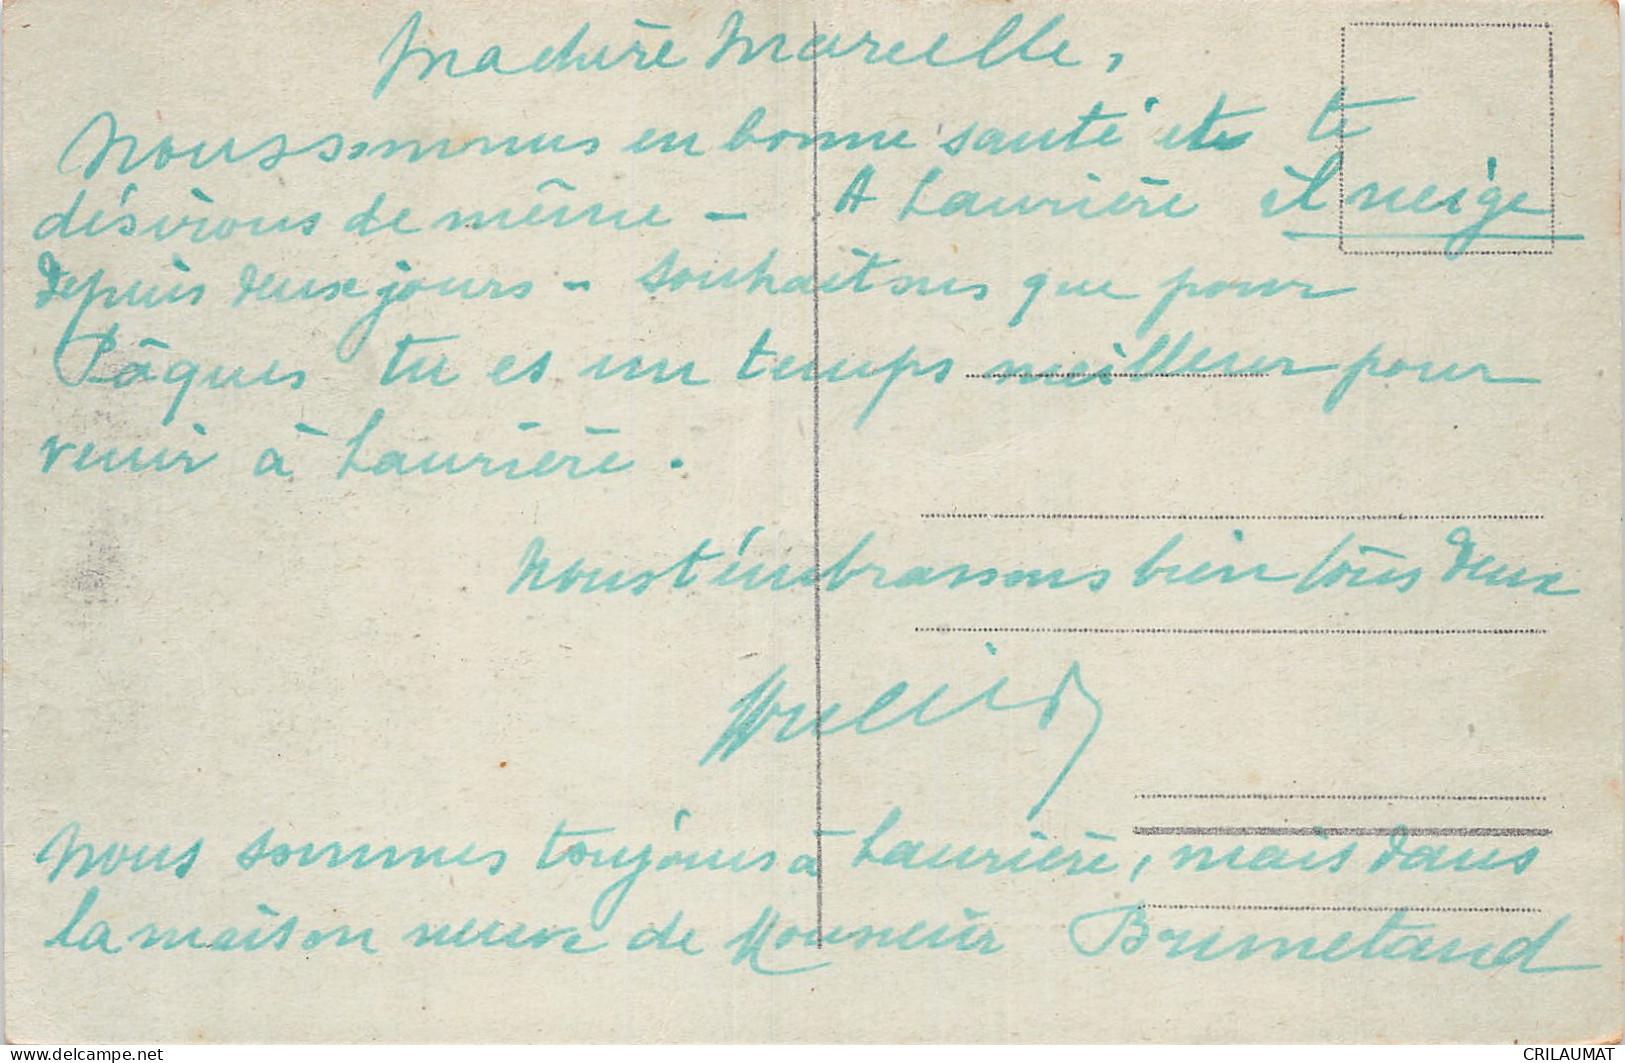 Ma chère Marcelle,
Nous sommes en bonne santé et te
désirons de même - A Laurière il neige
depuis deux jours - Souhaitons que pour
Pâques tu es un temps meilleur pour
venir à Laurière.
Nous t'embrassons bien tous deux
Nous sommes toujours à Laurière, mais dans
la maison neuve de Monsieur Brunetaud
www.delcampe.net
CRILAUMAT